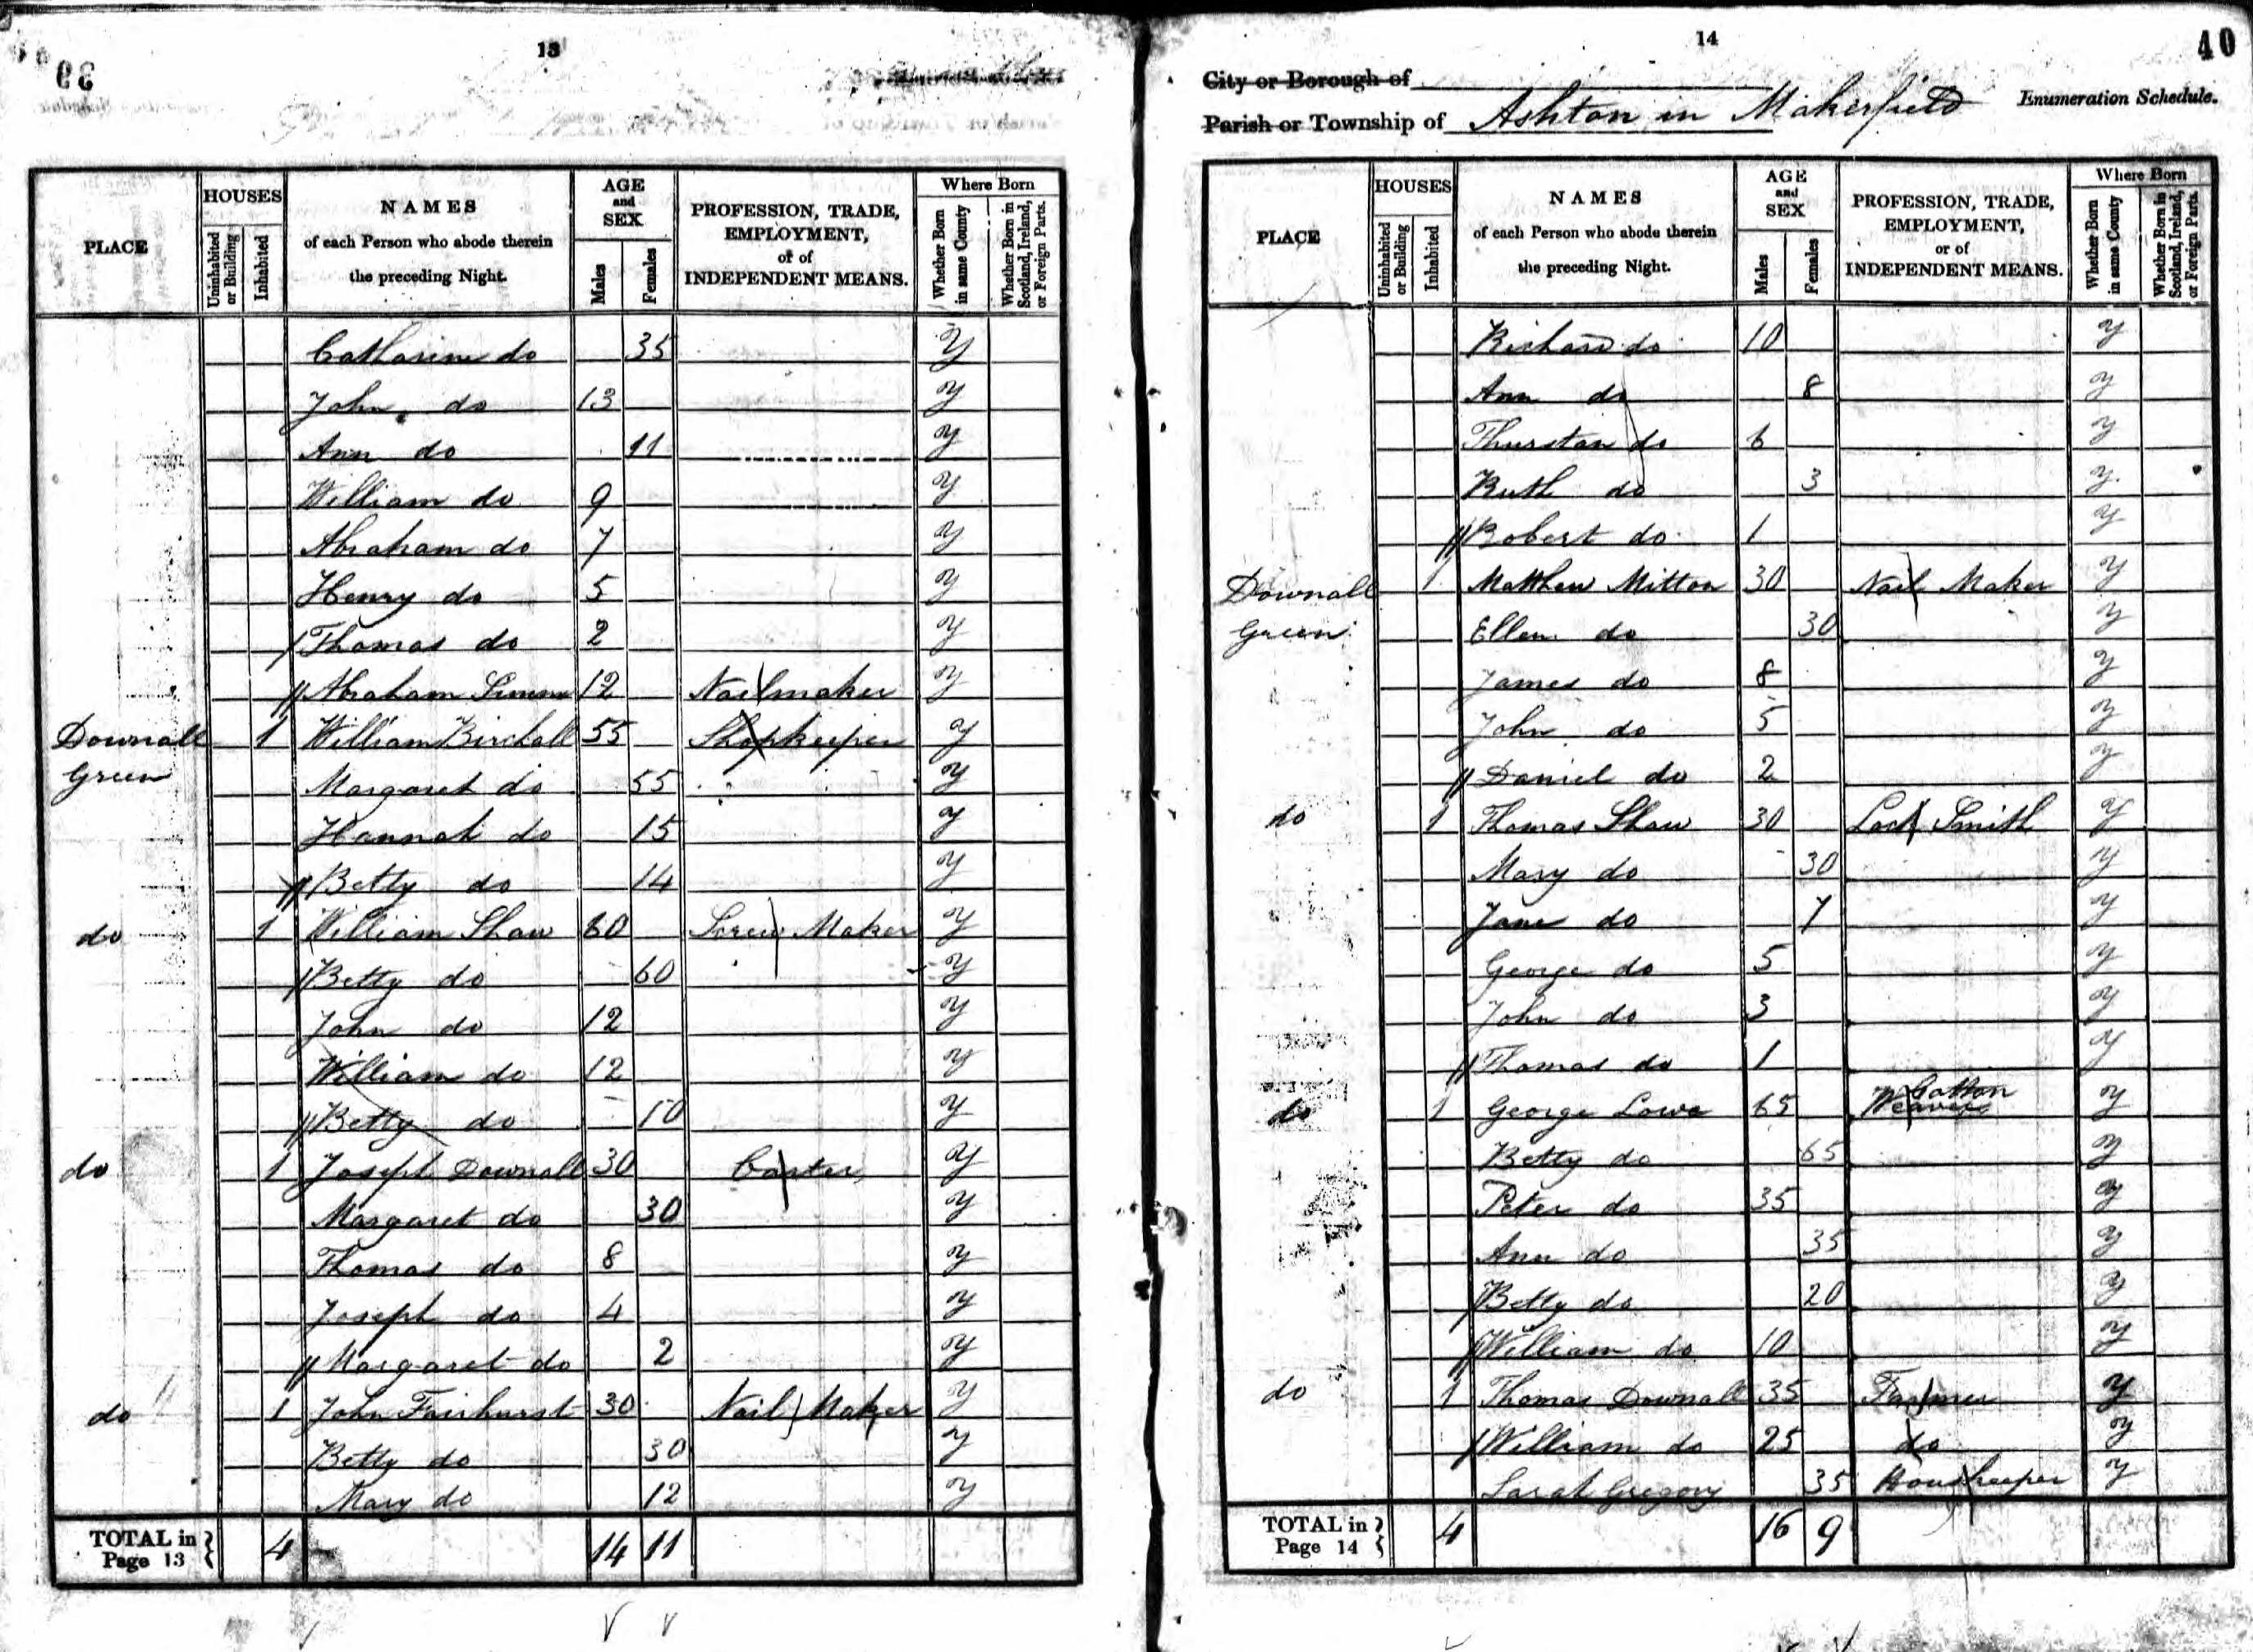 13
PLACE HOUSES NAMES AGE PROFESSION, TRADE, Where Born
Uninhabited or Building Inhabited of each Person who abode therein the preceding Night. and SEX Males Females EMPLOYMENT, or of INDEPENDENT MEANS. Whether Born in same County Whether Born in Scotland, Ireland, or Foreign Parts.
Catharine do 35 y
John do 13 y
Ann do 11 y
William do 9 y
Abraham do 7 y
Henry do 5 y
Thomas do 2 y
Abraham 12 Nailmaker y
Downall Green 1 William Birchall 55 Shopkeeper y
Margaret do 55 y
Hannah do 15 y
Betty do 14 y
do 1 William Shaw 60 Screw Maker y
Betty do 60 y
John do 12 y
William do 12 y
Betty do 10 y
do 1 Joseph Downall 30 Carter y
Margaret do 30 y
Thomas do 8 y
Joseph do 4 y
Margaret do 2 y
do 1 John Fairhurst 30 Nail Maker y
Betty do 30 y
Mary do 12 y
TOTAL in Page 13 4 14 11
14
40
City or Borough of
Enumeration Schedule.
Parish or Township of Ashton in Makerfield
PLACE HOUSES NAMES AGE PROFESSION, TRADE, Where Born
Uninhabited or Building Inhabited of each Person who abode therein the preceding Night. and SEX Males Females EMPLOYMENT, or of INDEPENDENT MEANS. Whether Born in same County Whether Born in Scotland, Ireland, or Foreign Parts.
Richard do 10 y
Ann do 8 y
Thurstan do 6 y
Ruth do 3 y
Robert do 1 y
Downall Green 1 Matthew Mitton 30 Nail Maker y
Ellen do 30 y
James do 8 y
John do 5 y
Daniel do 2 y
do 1 Thomas Shaw 30 Lock Smith y
Mary do 30 y
Jane do 7 y
George do 5 y
John do 3 y
Thomas do 1 y
do 1 George Lowe 65 Cotton Weaver y
Betty do 65 y
Peter do 35 y
Ann do 35 y
Betty do 20 y
William do 10 y
do 1 Thomas Downall 35 Farmer y
William do 25 do y
Sarah Gregory 35 Housekeeper y
TOTAL in Page 14 4 16 9